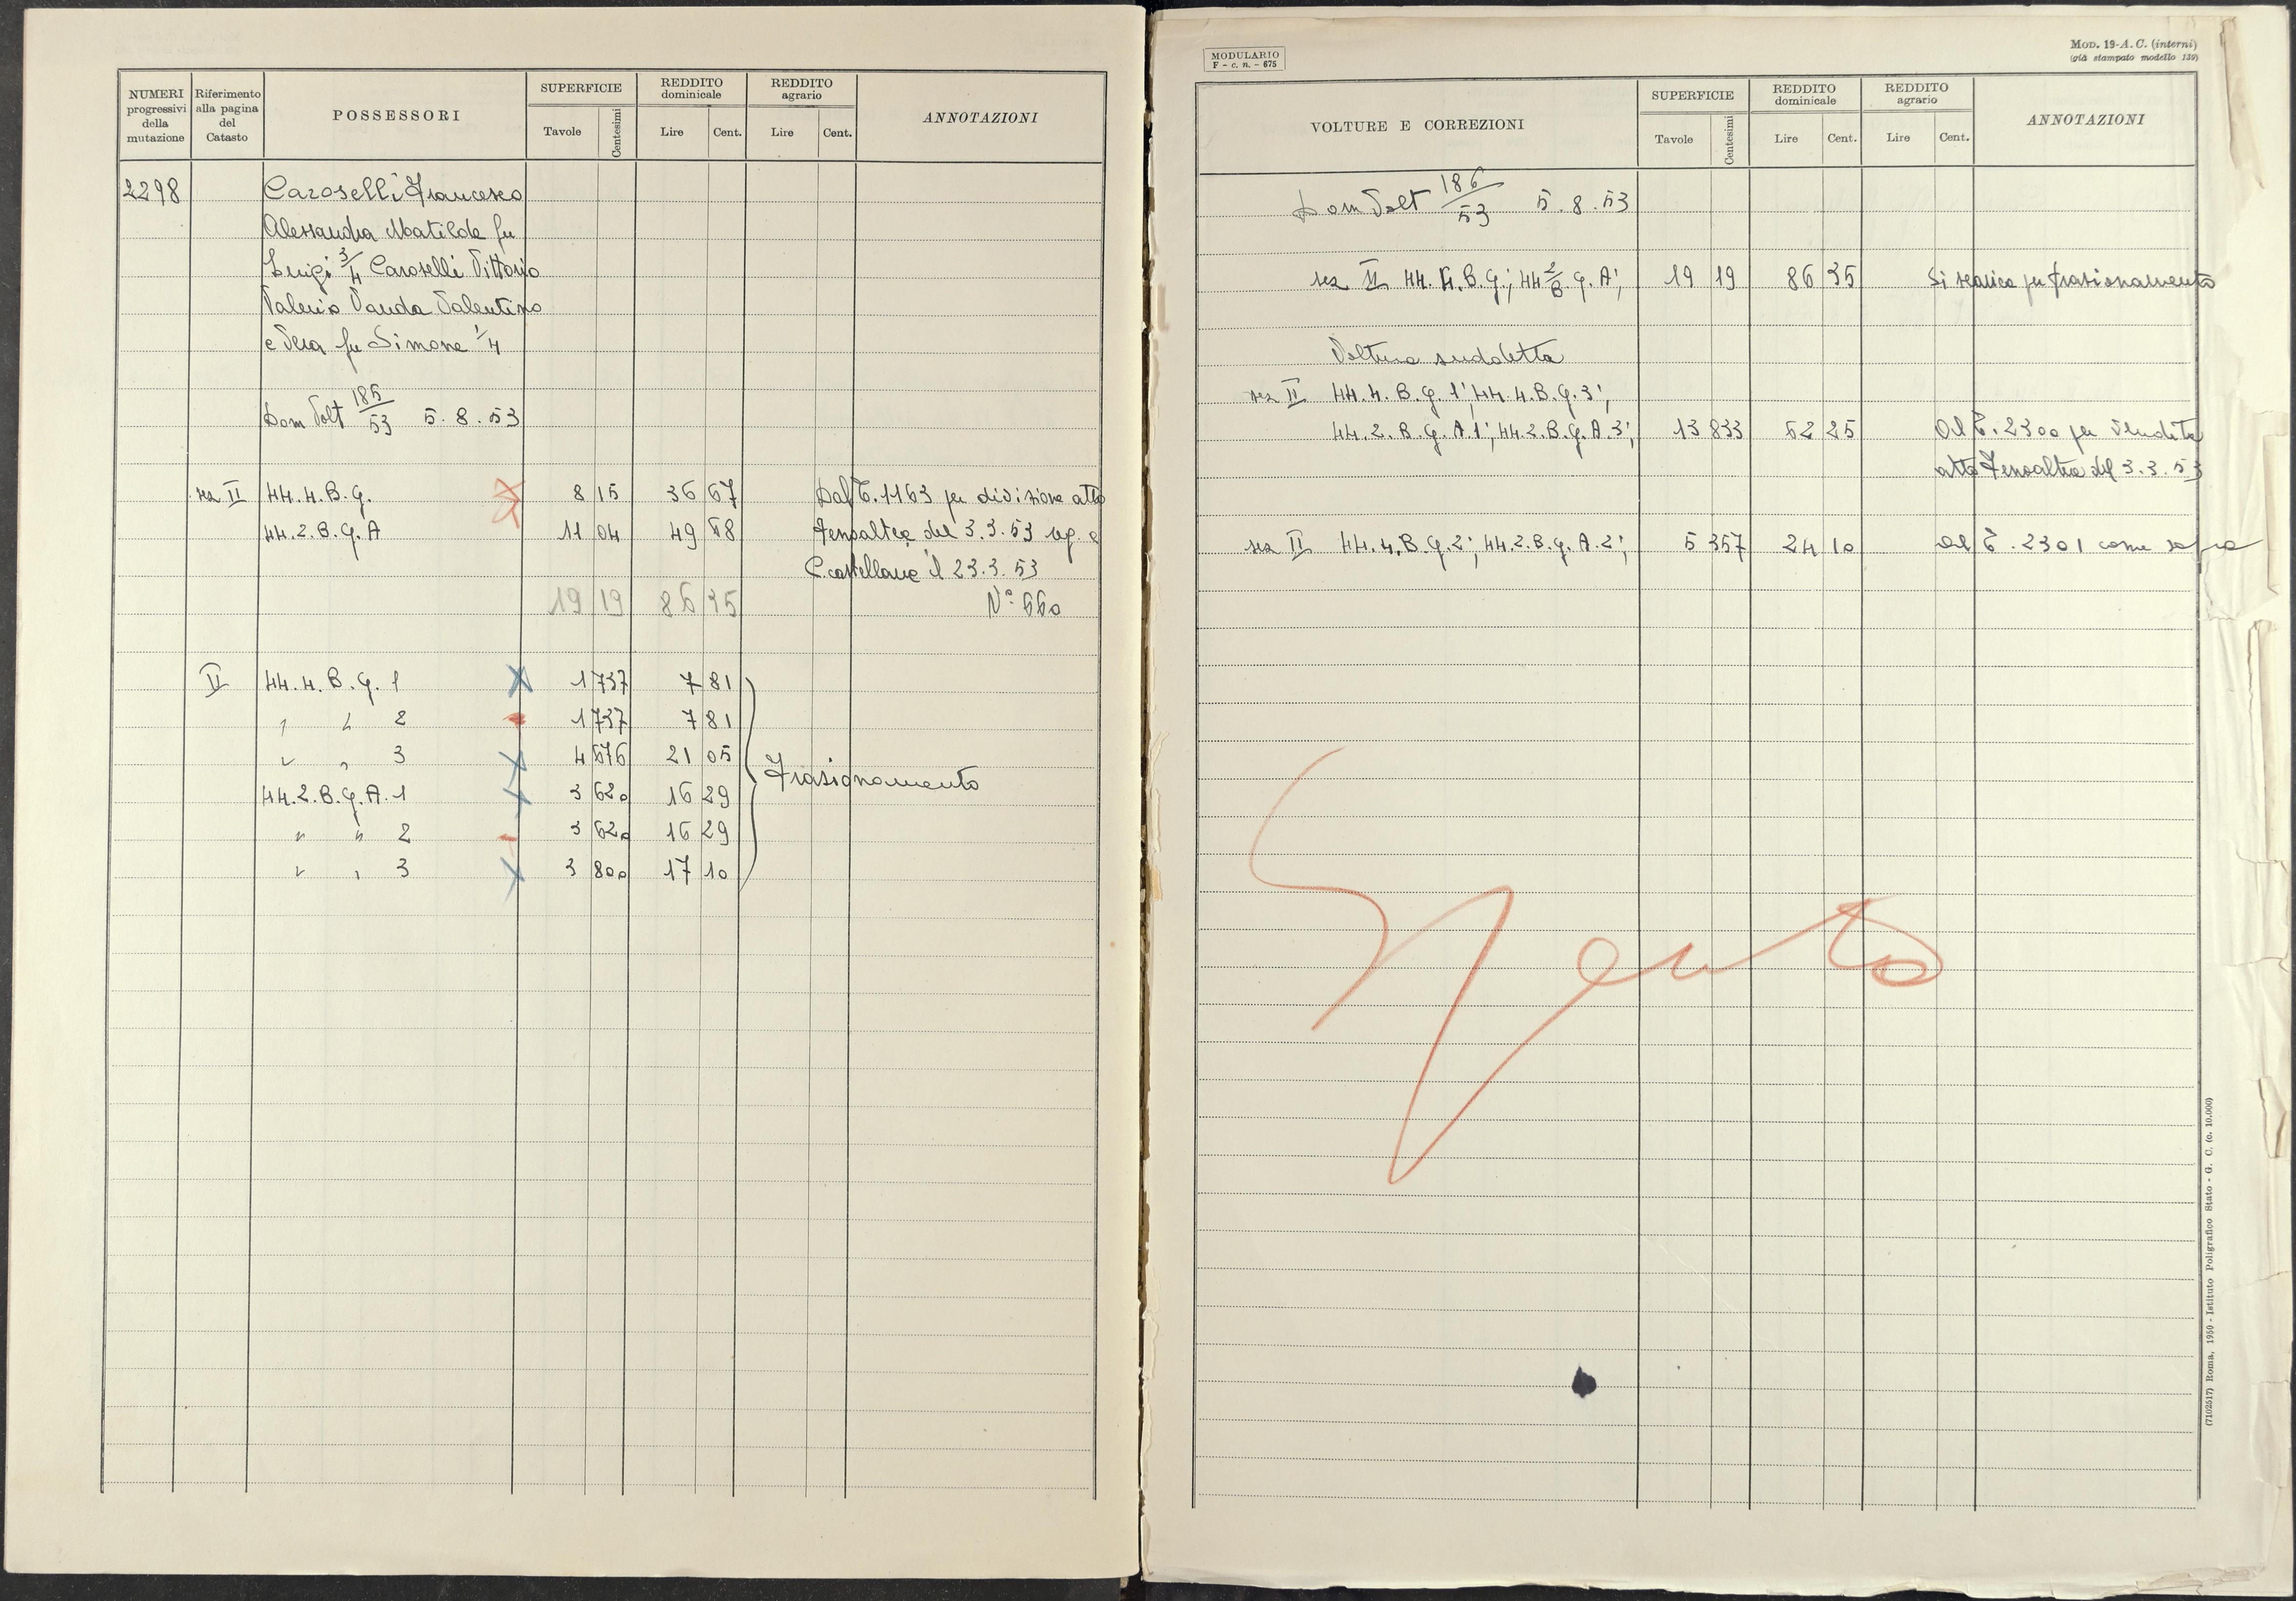 NUMERI progressivi della mutazione | Riferimento alla pagina del Catasto | POSSESSORI | SUPERFICIE Tavole Centesimi | REDDITO dominicale Lire Cent. | REDDITO agrario Lire Cent. | ANNOTAZIONI
2298 Caroselli Francesco
Alessandra Matilde fu
Luigi 3/4 Caroselli Vittorio
Valerio Vanda Valentino
e Vera fu Simone 1/4
Dom Volt 185/53 5.8.53
sez II 44.4.B.G. 8 15 36 67 Dal C.1163 per divisione atto
44.2.B.G.A 11 04 49 68 Fenoaltea del 3.3.53 reg. a
C.castellana il 23.3.53
19 19 86 35 N° 660
II 44.4.B.G. 1 1 737 7 81
" " 2 1 737 7 81
" " 3 4 676 21 05
Frazionamento
44.2.B.G.A.1 3 620 16 29
" " 2 3 620 16 29
" " 3 3 800 17 10
MODULARIO
F - c. n. - 675
MOD. 19-A. C. (interni)
(già stampato modello 139)
VOLTURE E CORREZIONI | SUPERFICIE Tavole Centesimi | REDDITO dominicale Lire Cent. | REDDITO agrario Lire Cent. | ANNOTAZIONI
Dom Volt 186/53 5.8.53
sez II 44.4.B.G.; 44 2/B. G.A; 19 19 86 35 Si scarica per frazionamento
Voltura suddetta
sez II 44.4.B.G.1; 44.4.B.G.3;
44.2.B.G.A 1; 44.2.B.G.A.3; 13 833 62 25 Al C.2300 per vendita
atto Fenoaltea del 3.3.53
sez II 44.4.B.G.2; 44.2.B.G.A.2; 5 357 24 10 Al C.2301 come sopra
Spento
(7102517) Roma, 1950 - Istituto Poligrafico Stato - G. C. (c. 10.000)